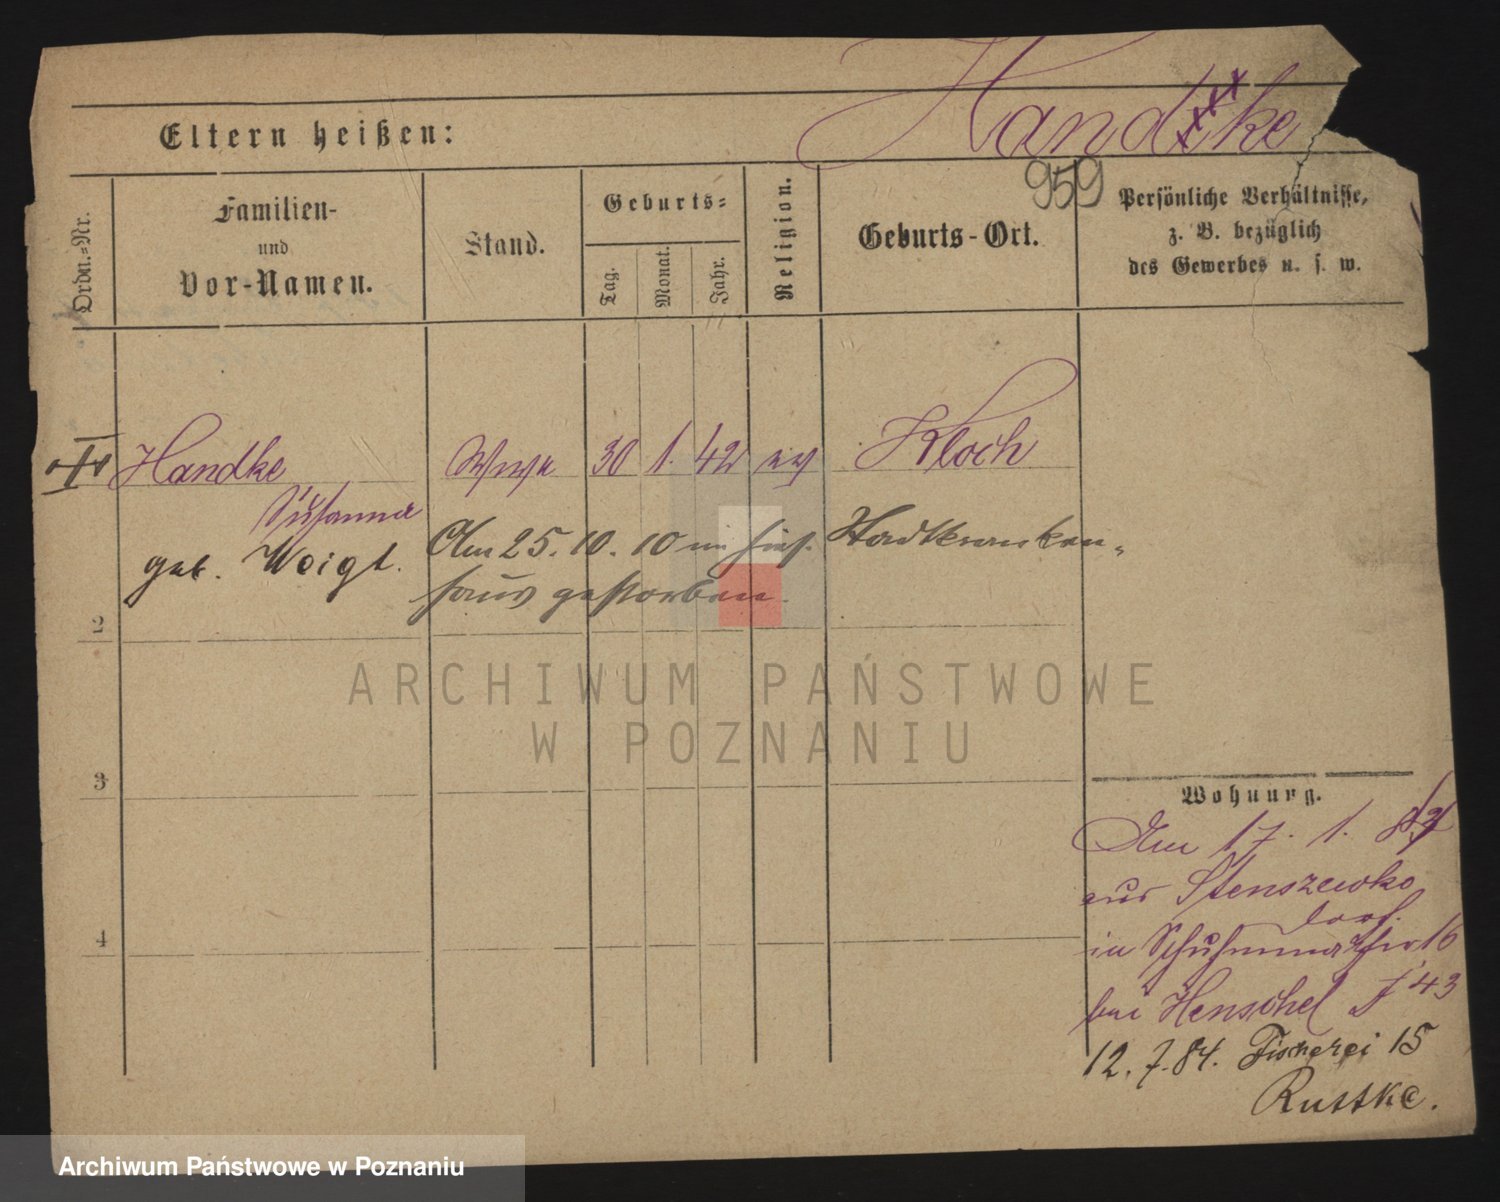 Handke
Eltern heißen:
959
Ordn.-Nr.
Familien-
und
Vor-Namen.
Stand.
Geburts-
Tag.
Monat.
Jahr.
Religion.
Geburts-Ort.
Persönliche Verhältnisse,
z. B. bezüglich
des Gewerbes u. s. w.
Handke Wwe 30 1. 42 ev Kloch
Susanna
geb. Voigt.
Am 25. 10. 10 im hies. Stadtkranken-
haus gestorben.
2
3
4
Wohnung.
Am 17. 1.
aus Stenszewko
dorf.
in Schuhmacher 16
bei Henschel J 43
12. 7. 84. Fischerei 15
Rustke.
ARCHIWUM PAŃSTWOWE
W POZNANIU
Archiwum Państwowe w Poznaniu